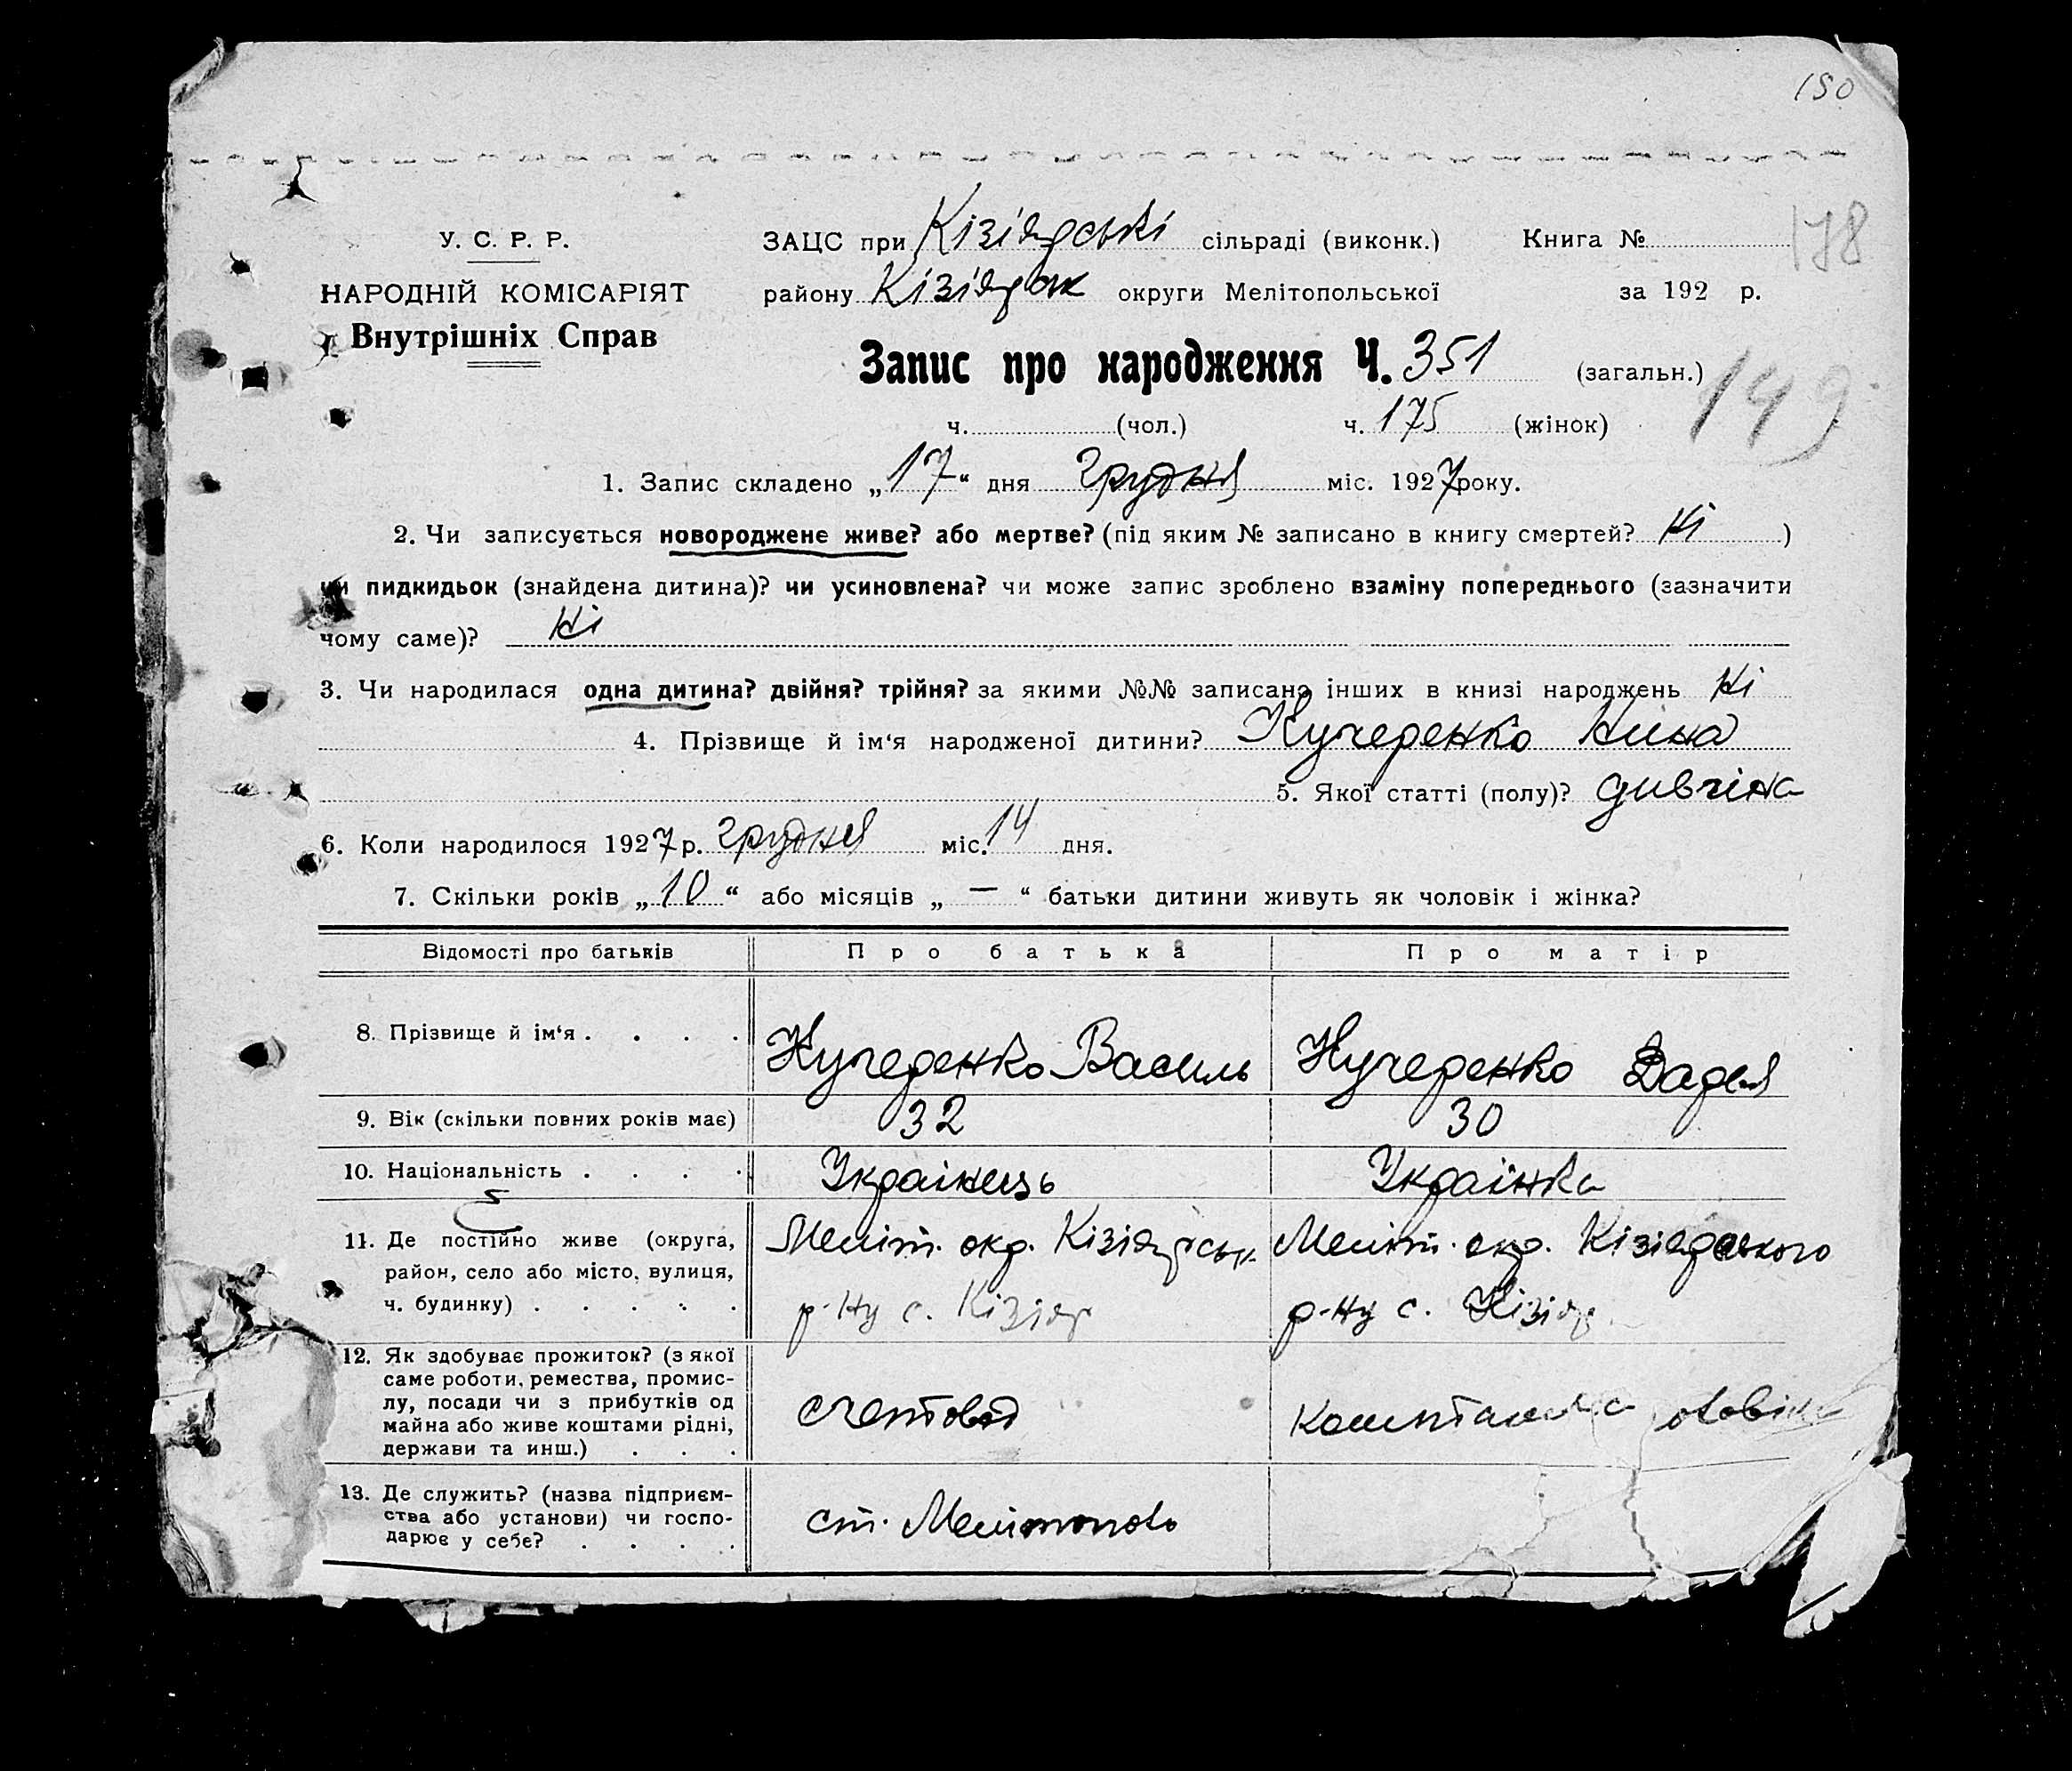 150
У. С. Р. Р.
НАРОДНІЙ КОМІСАРІЯТ
Внутрішніх Справ
ЗАЦС при Кізіярські сільраді (виконк.) Книга №
178
району Кізіярск округи Мелітопольської за 192 р.
Запис про народження Ч. 351 (загальн.)
149
ч. (чол.) ч. 175 (жінок)
1. Запис складено „17“ дня грудня міс. 1927 року.
2. Чи записується новороджене живе? або мертве? (під яким № записано в книгу смертей? Ні )
чи пидкидьок (знайдена дитина)? чи усиновлена? чи може запис зроблено взаміну попереднього (зазначити
чому саме)? Ні
3. Чи народилася одна дитина? двійня? трійня? за якими №№ записано інших в книзі народжень Ні
4. Прізвище й ім‘я народженої дитини? Кучеренко Нина
5. Якої статті (полу)? дивчіна
6. Коли народилося 1927 р. грудня міс. 14 дня.
7. Скільки років „10“ або місяців „—“ батьки дитини живуть як чоловік і жінка?
Відомості про батьків Про батька Про матір
8. Прізвище й ім‘я . . . . Кучеренко Василь Кучеренко
9. Вік (скільки повних років має) 32 30
10. Національність . . . . Украінець Украінка
11. Де постійно живе (округа, Меліт. окр. Кізіярськ Меліт. окр. Кізіярського
район, село або місто, вулиця,
ч. будинку) . . . . . р-ну с. Кізіяр р-ну с. Кізіяр
12. Як здобуває прожиток? (з якої
саме роботи, ремества, промис-
лу, посади чи з прибутків од
майна або живе коштами рідні,
держави та инш.) . . . счетовод
13. Де служить? (назва підприєм-
ства або установи) чи госпо-
дарює у себе? . . . . ст. Мелітополь